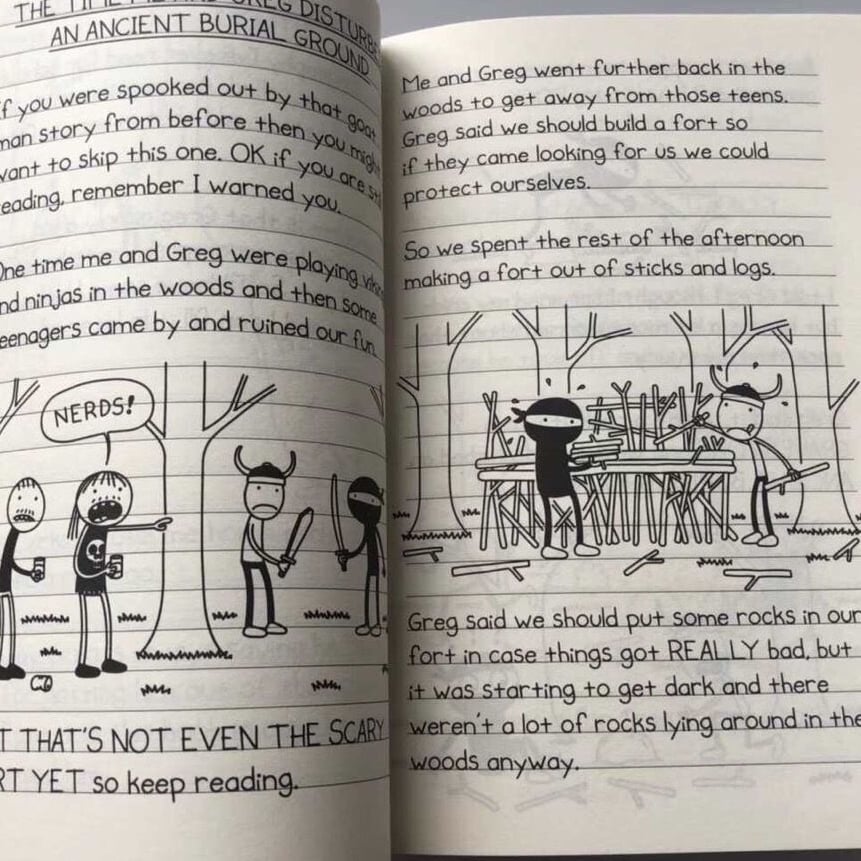 THE TIME ME AND GREG DISTURBE
AN ANCIENT BURIAL GROUND
f you were spooked out by that goat
man story from before then you might
want to skip this one. OK if you are sti
eading, remember I warned you.
One time me and Greg were playing vikin
nd ninjas in the woods and then some
eenagers came by and ruined our fun.
NERDS!
T THAT'S NOT EVEN THE SCARY
RT YET so keep reading.
Me and Greg went further back in the
woods to get away from those teens.
Greg said we should build a fort so
if they came looking for us we could
protect ourselves.
So we spent the rest of the afternoon
making a fort out of sticks and logs.
Greg said we should put some rocks in our
fort in case things got REALLY bad, but
it was starting to get dark and there
weren't a lot of rocks lying around in the
woods anyway.